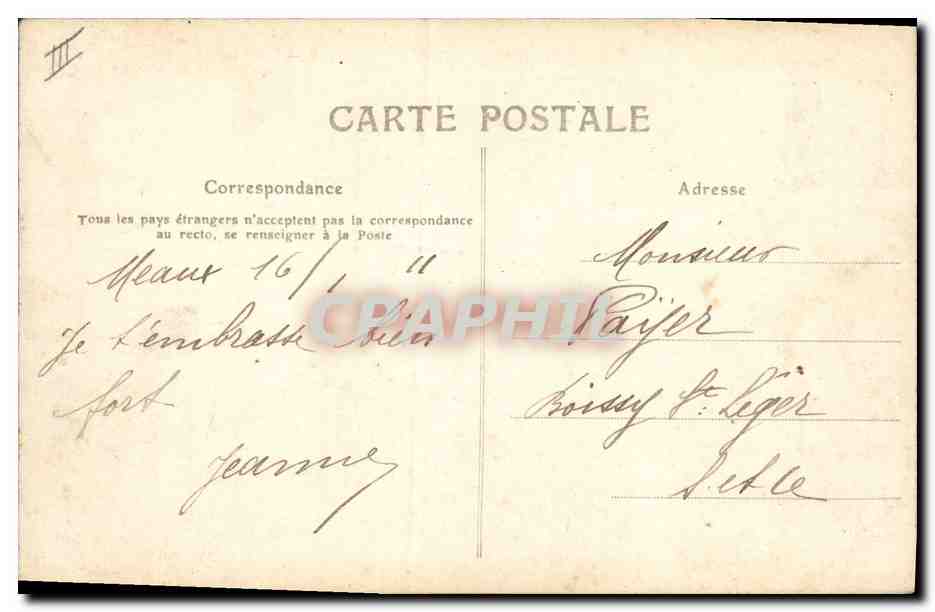 III
CARTE POSTALE
Correspondance
Tous les pays étrangers n'acceptent pas la correspondance
au recto, se renseigner à la Poste
Meaux 16/1 11
Je t'embrasse bien
fort
Jeanne
Adresse
Monsieur
Payer
Boissy St: Léger
S. et Oe
CPAPHIL